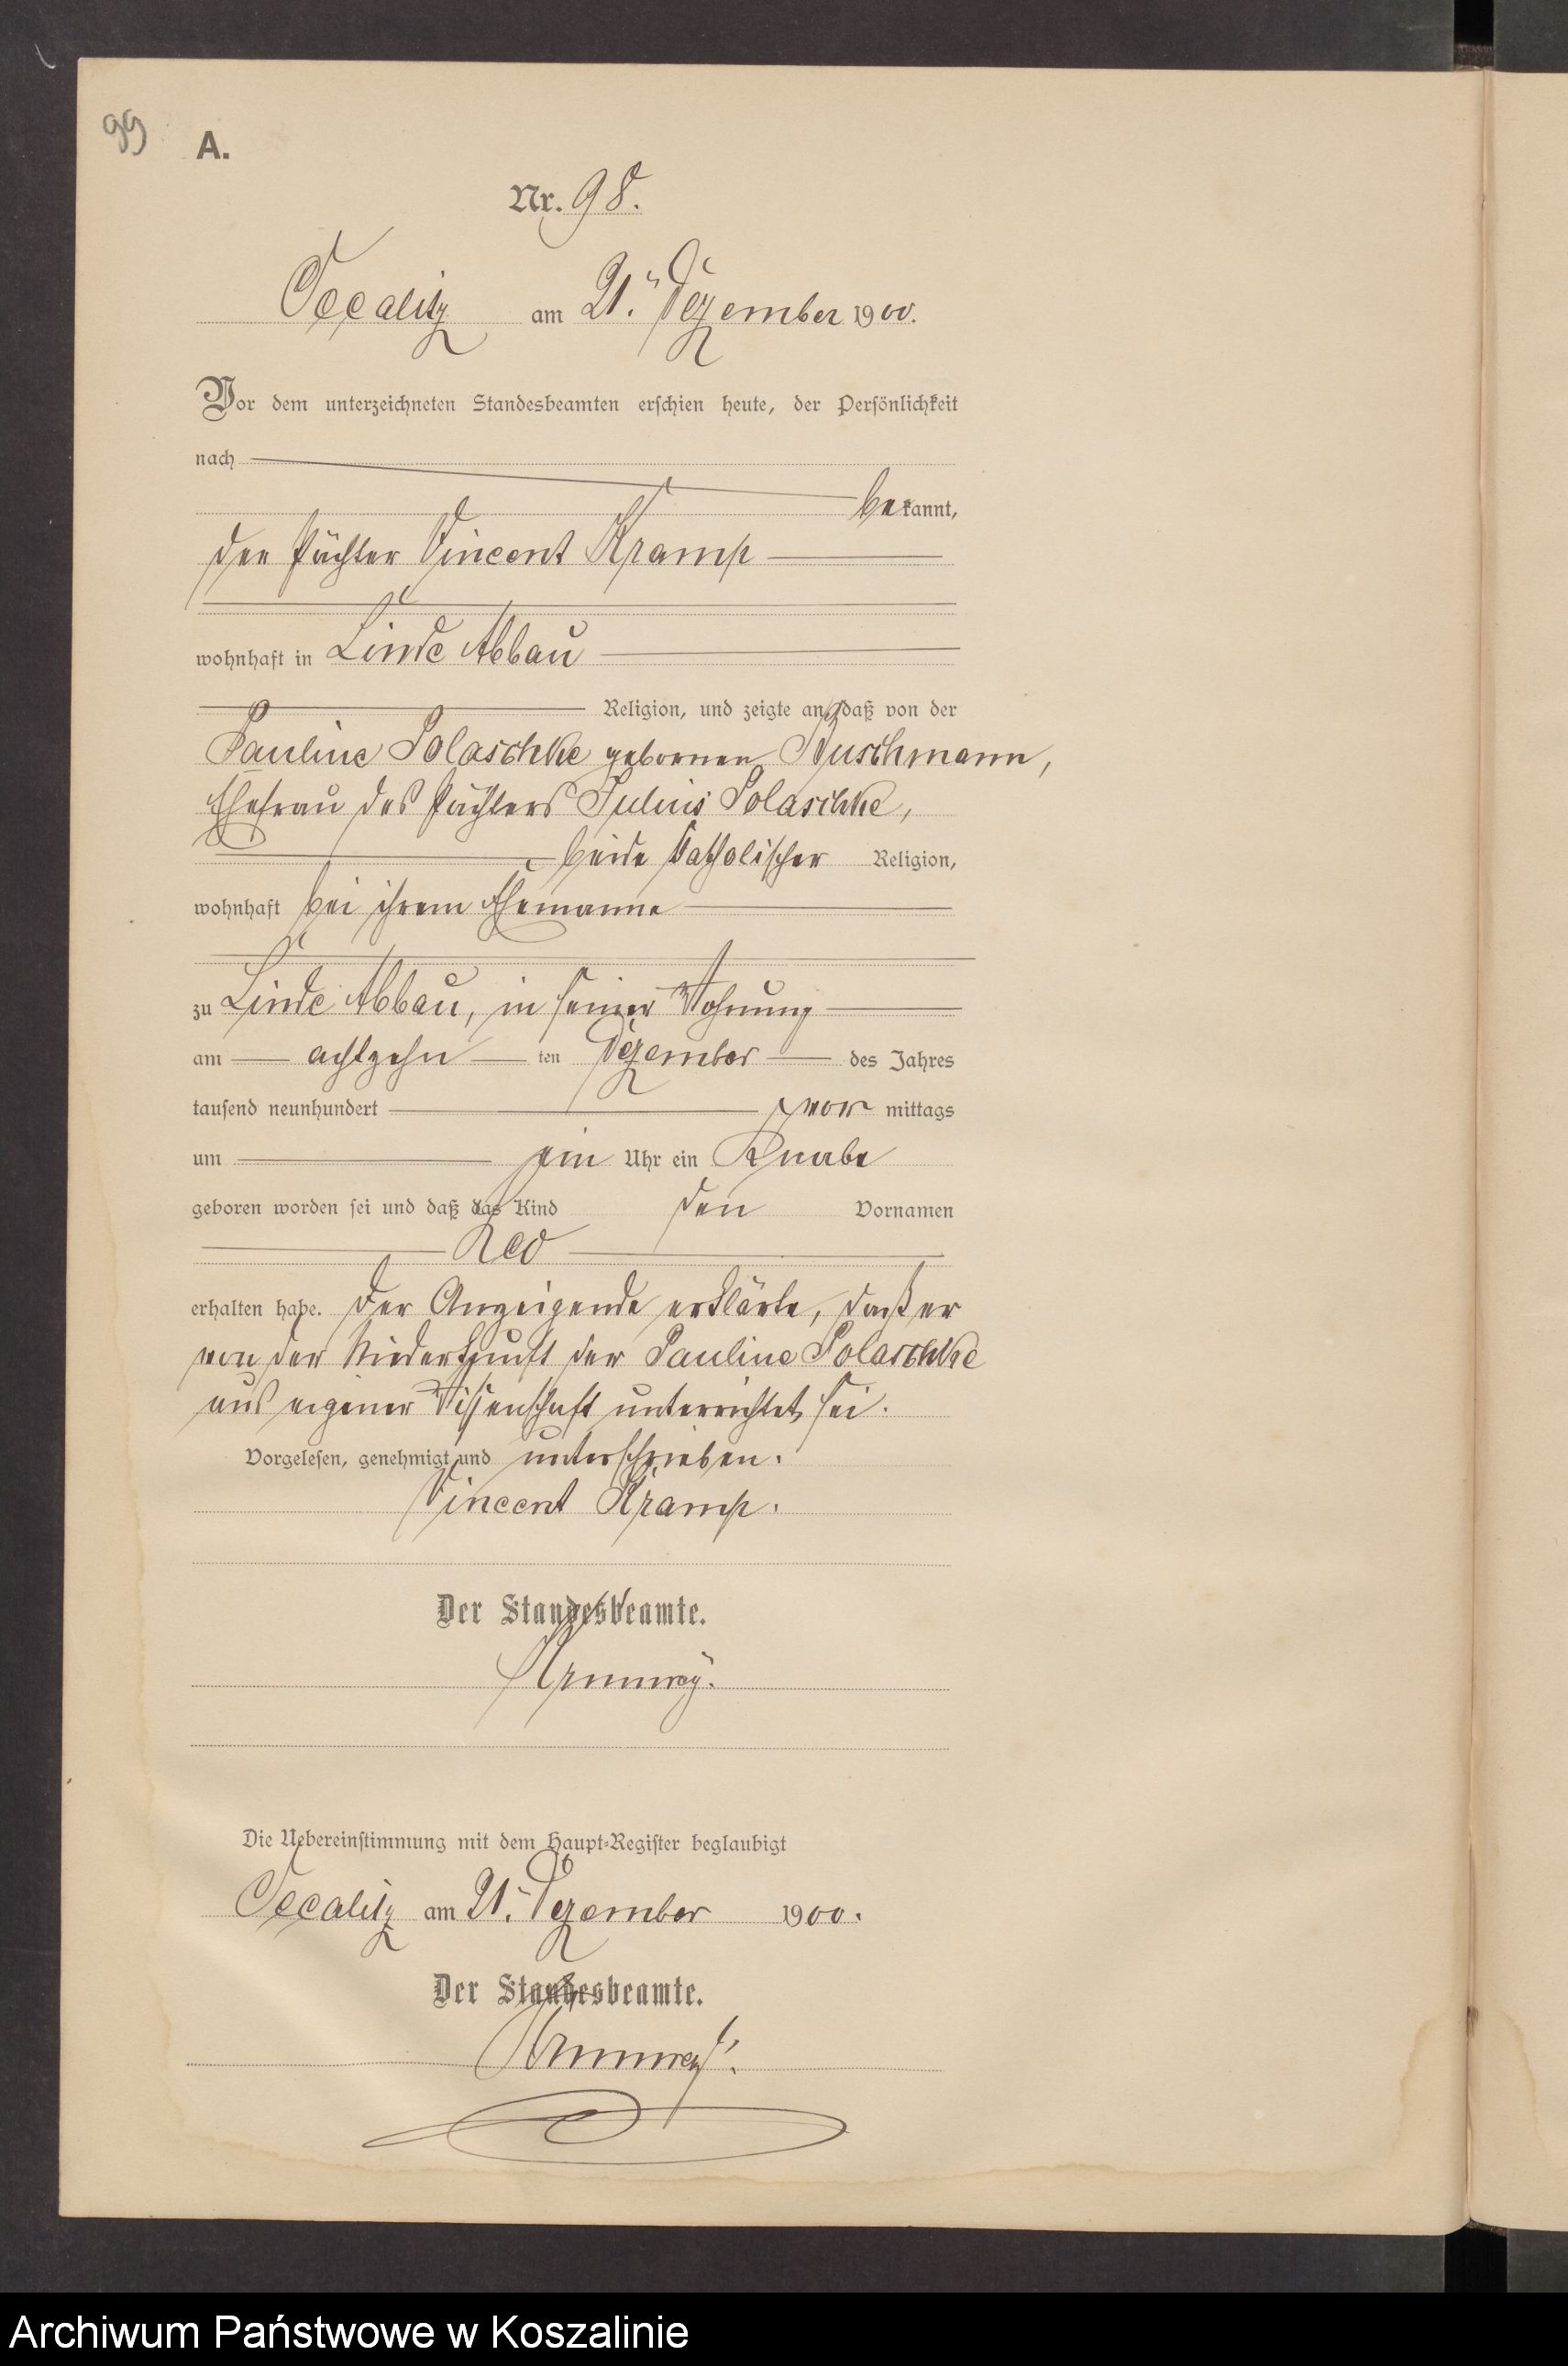 99
A.
Nr. 98.
am 21. Dezember 1900.
Vor dem unterzeichneten Standesbeamten erschien heute, der Persönlichkeit
nach
bekannt,
der Pächter Vincent Kramp
wohnhaft in Linde Abbau
Religion, und zeigte an, daß von der
Pauline Polaschke geborenen Kuschmann,
Ehefrau des Pächters Julius Polaschke,
beide katholischer Religion,
wohnhaft bei ihrem Ehemanne
zu Linde Abbau, in seiner Wohnung
am achtzehn ten Dezember des Jahres
tausend neunhundert vor mittags
um ein Uhr ein Knabe
geboren worden sei und daß das Kind den Vornamen
Leo
erhalten habe. Der Anzeigende erklärte, daß er
von der Niederkunft der Pauline Polaschke
aus eigener Wissenschaft unterrichtet sei.
Vorgelesen, genehmigt und unterschrieben.
Vincent Kramp.
Der Standesbeamte.
Die Uebereinstimmung mit dem Haupt-Register beglaubigt
am 21. Dezember 1900.
Der Standesbeamte.
Archiwum Państwowe w Koszalinie